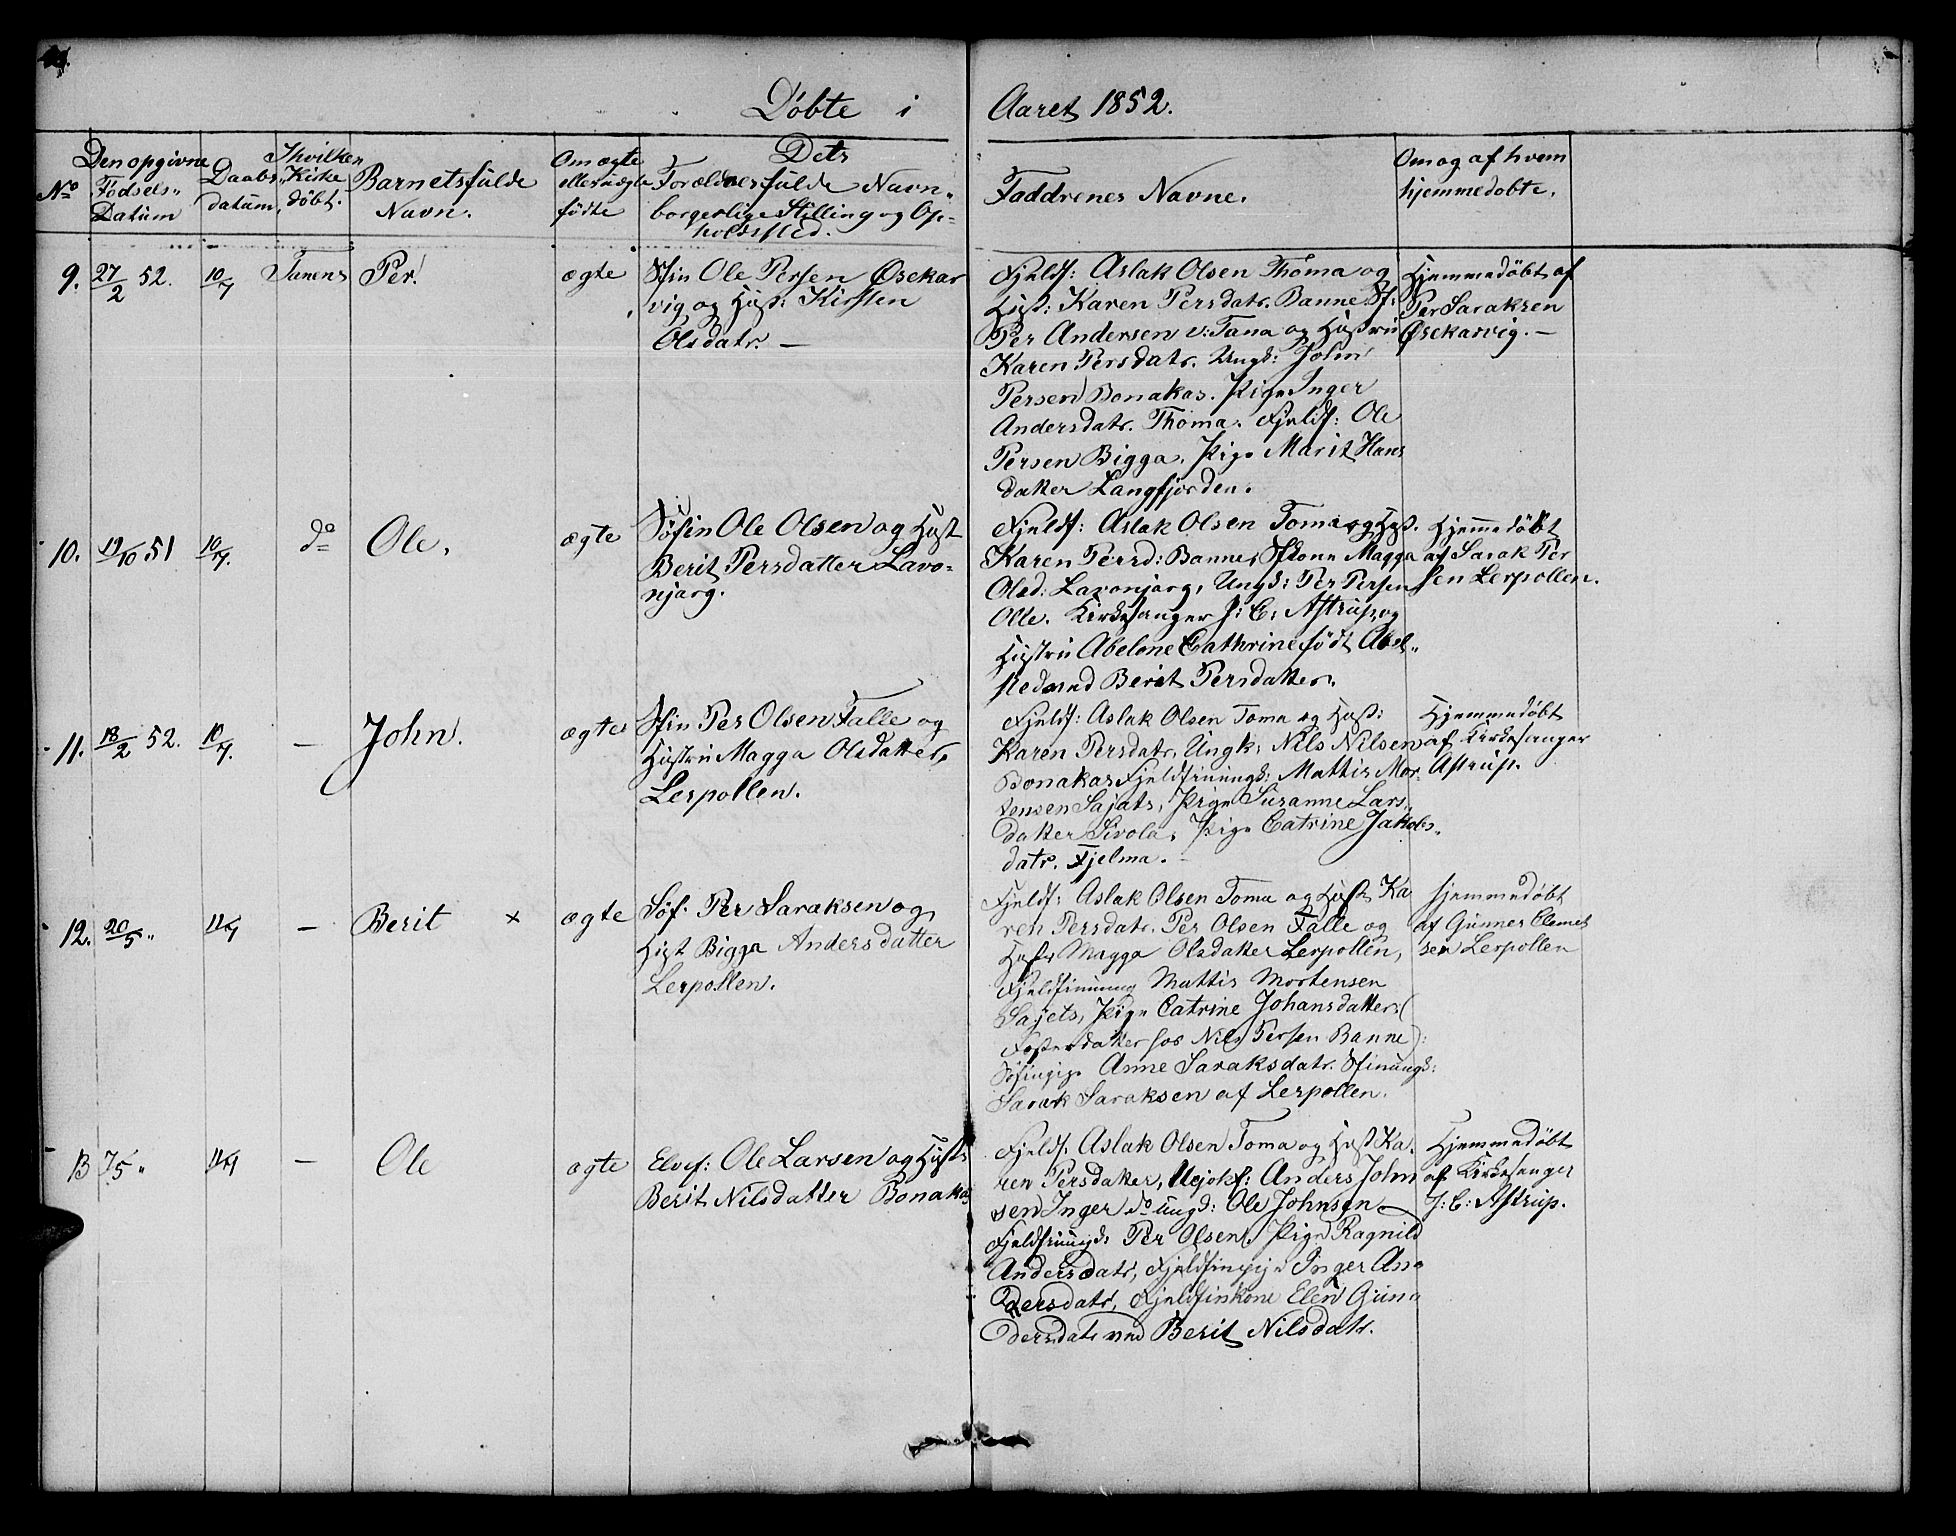 Døbte i Aaret 1852.
No
Den opgivne
Fødsels
Datum
Daabs
datum,
I hvilken
Kirke
døbt.
Barnets fulde
Navn.
Om ægte
eller uægte
fødte
Dets
Forældres fulde Navn
borgerlige Stilling og Op=
holdssted.
Faddrenes Navne.
Om og af hvem
hjemmedøbte.
9. 27/2 52. 10/7 Tanens Per. ægte
Sfin Ole Persen Øsekar
vig og Hust: Kirsten
Olsdatr. —
Fjeldf: Aslak Olsen Thoma og
Hust: Karen Persdatr. Banne. Sf:
Per Andersen v: Tana og Hustru
Karen Persdatr. Ungk: John
Persen Bonakas. Pige Inger
Andersdatr. Thoma. Fjeldf: Ole
Persen Bigga. Pige Marit Hans
datter Langfjorden.
Hjemmedøbt af
Per Saraksen
Øsekarvig. —
10. 19/10 51 10/7. do Ole. ægte
Søfin Ole Olsen og Hust
Berit Persdatter Lavo=
njarg.
Fjeldf: Aslak Olsen Toma og Hust.
Karen Persd: Banne, Sfkone Magga
Olsd: Lavonjarg, Ungd: Per Persen
Olle. Kirkesanger J: C: Astrup og
Hustru Abelone Cathrine født Abel
sted og Berit Persdatter.
Hjemmedøbt
af Sarak Per
sen Lerpollen.
11. 18/2 52. 10/7. — John. ægte
Sfin Per Olsen Falle og
Hustru Magga Olsdatter,
Lerpollen.
Fjeldf: Aslak Olsen Toma og Hust:
Karen Persdatr, Ungk: Nils Nilsen
Bonakas Fjeldfinungd: Mattis Mor
tensen Sajets, Pige Susanne Lars
datter Sirola, Pige Catrine Jakobs
datr. Fjelma. —
Hjemmedøbt
af Kirkesanger
Astrup.
12. 20/5 " 11/7 — Berit × ægte
Søf: Per Saraksen og
Hust Bigga Andersdatter
Lerpollen.
Fjeldf: Aslak Olsen Toma og Hust Ka
ren Persdatr. Per Olsen Falle og
Hust Magga Olsdatter Lerpollen,
Fjeldfinnung Mattis Mortensen
Sajets, Pige Catrine Johansdatter (
Fosterdatter hos Nils Persen Banne):
Søfinpige Anne Saraksdatr. Sfinungd:
Sarak Saraksen af Lerpollen.
hjemmedøbt
af Gunner Clemet
sen Lerpollen
13 7/5 " 11/7 — Ole ægte
Elvef: Ole Larsen og Hust
Berit Nilsdatter Bonakas
Fjeldf. Aslak Olsen Toma og Hust Ka
ren Persdatter, Uejokf: Anders John
sen Inger do Ungd: Ole Johnsen
Fjeldfinungd: Per Olsen, Pige Ragnild
Andersdatr, Fjeldfinpige Inger An
dersdatr, Fjeldfinkone Elen Gun
dersdatr og Berit Nilsdatr.
Hjemmedøbt
af Kirkesanger
J: C: Astrup.